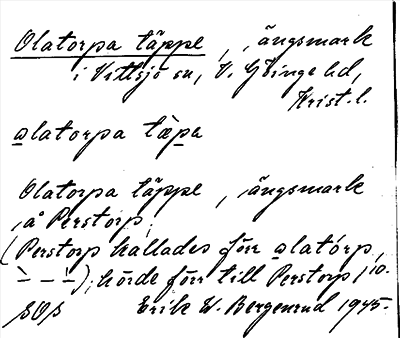 Olatorpa täppe, ängsmark
i Vittsjö sn, V. Göinge hd,
Krist. l.
olatorpa tæpa
Olatorpa täppe, ängsmark
å Perstorp,
(Perstorp kallades förr olatórp,
hörde förr till Perstorp 10.
SOS Erik W. Bergenrud 1945.